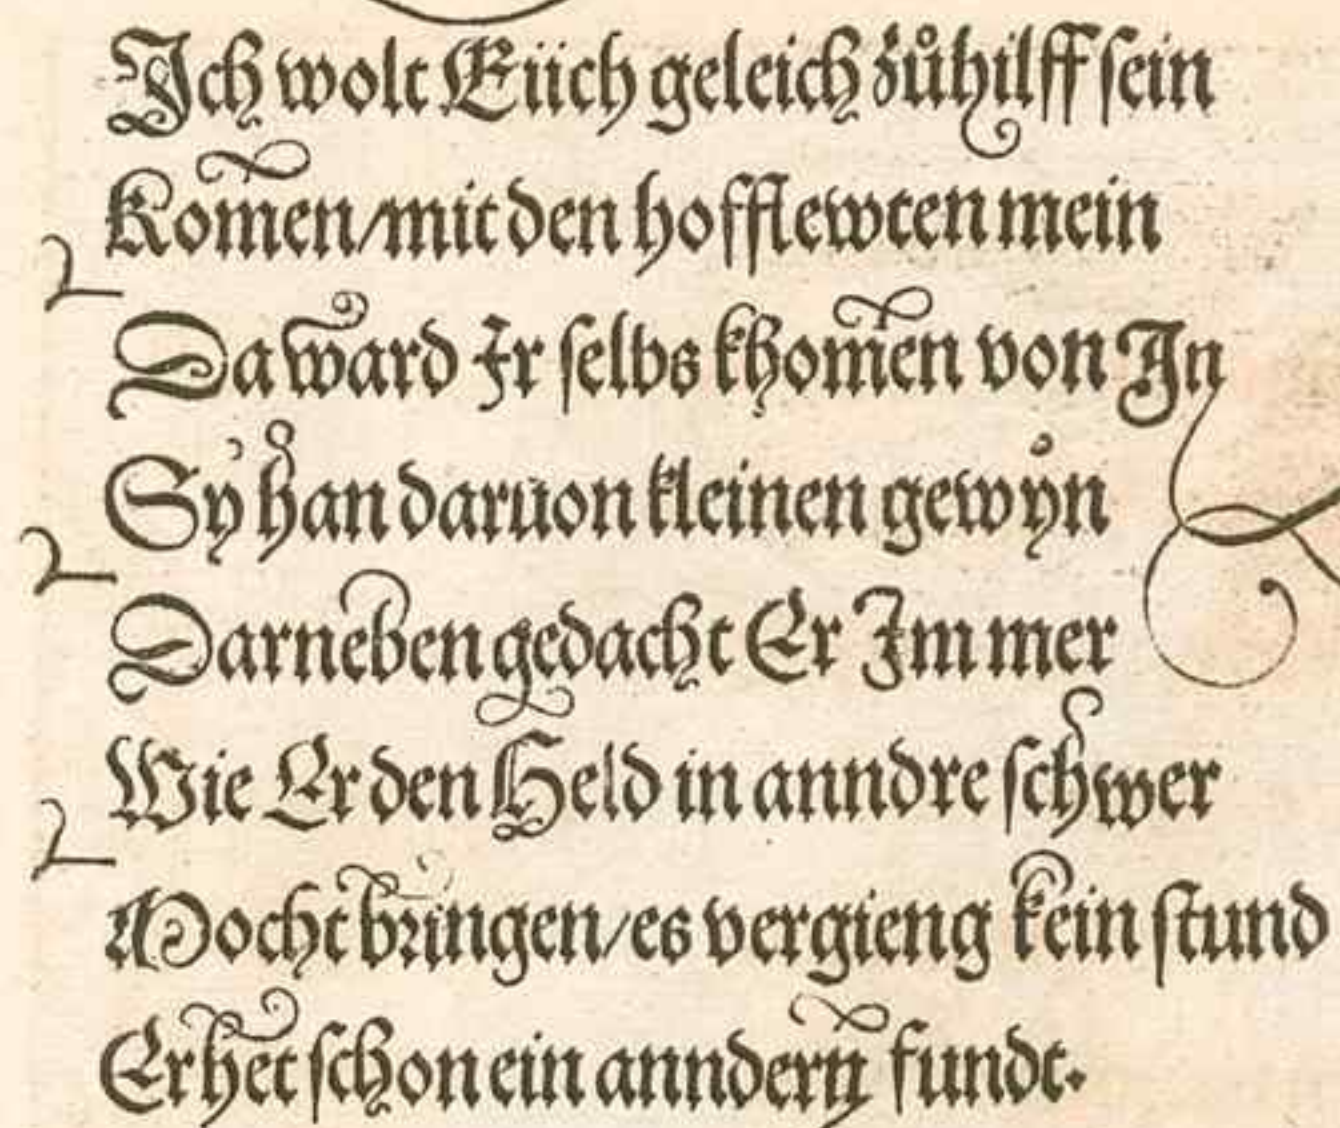 Ich wolt Eüch geleich zůhilff sein
Kom̄en/mit den hofflewten mein
Da ward Ir selbs khom̄en von In
Sy han daruon kleinen gewyn
Darneben gedacht Er Immer
Wie Er den Held in anndre schwer
Mocht bringen/es vergieng kein stund
Er het schon ein anndern fundt.